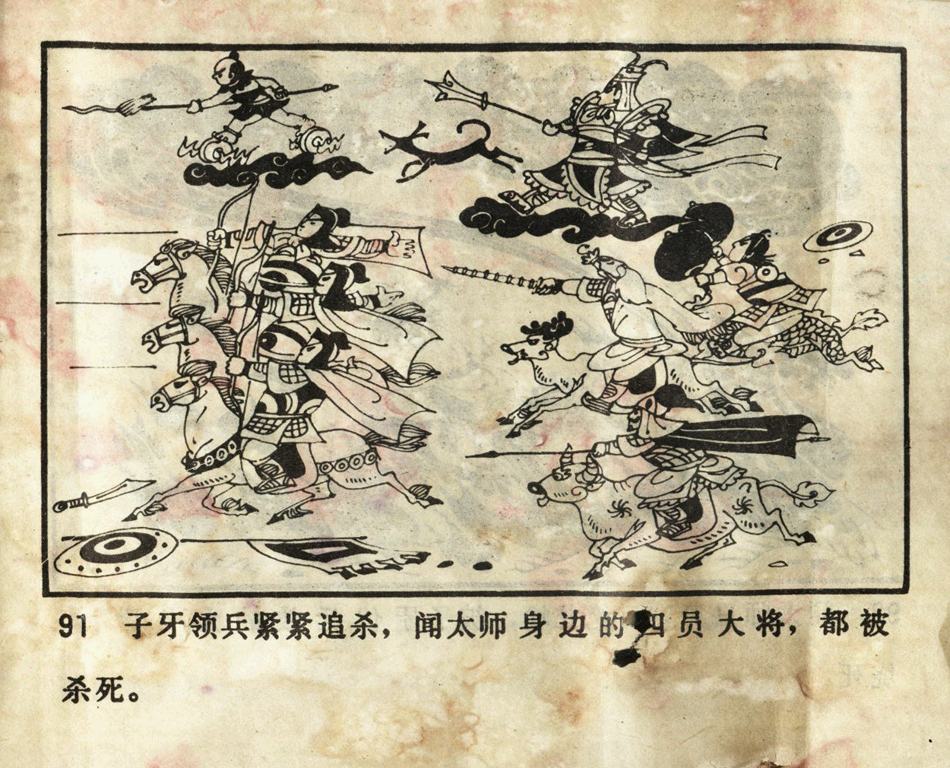 91 子牙领兵紧紧追杀，闻太师身边的四员大将，都被
杀死。